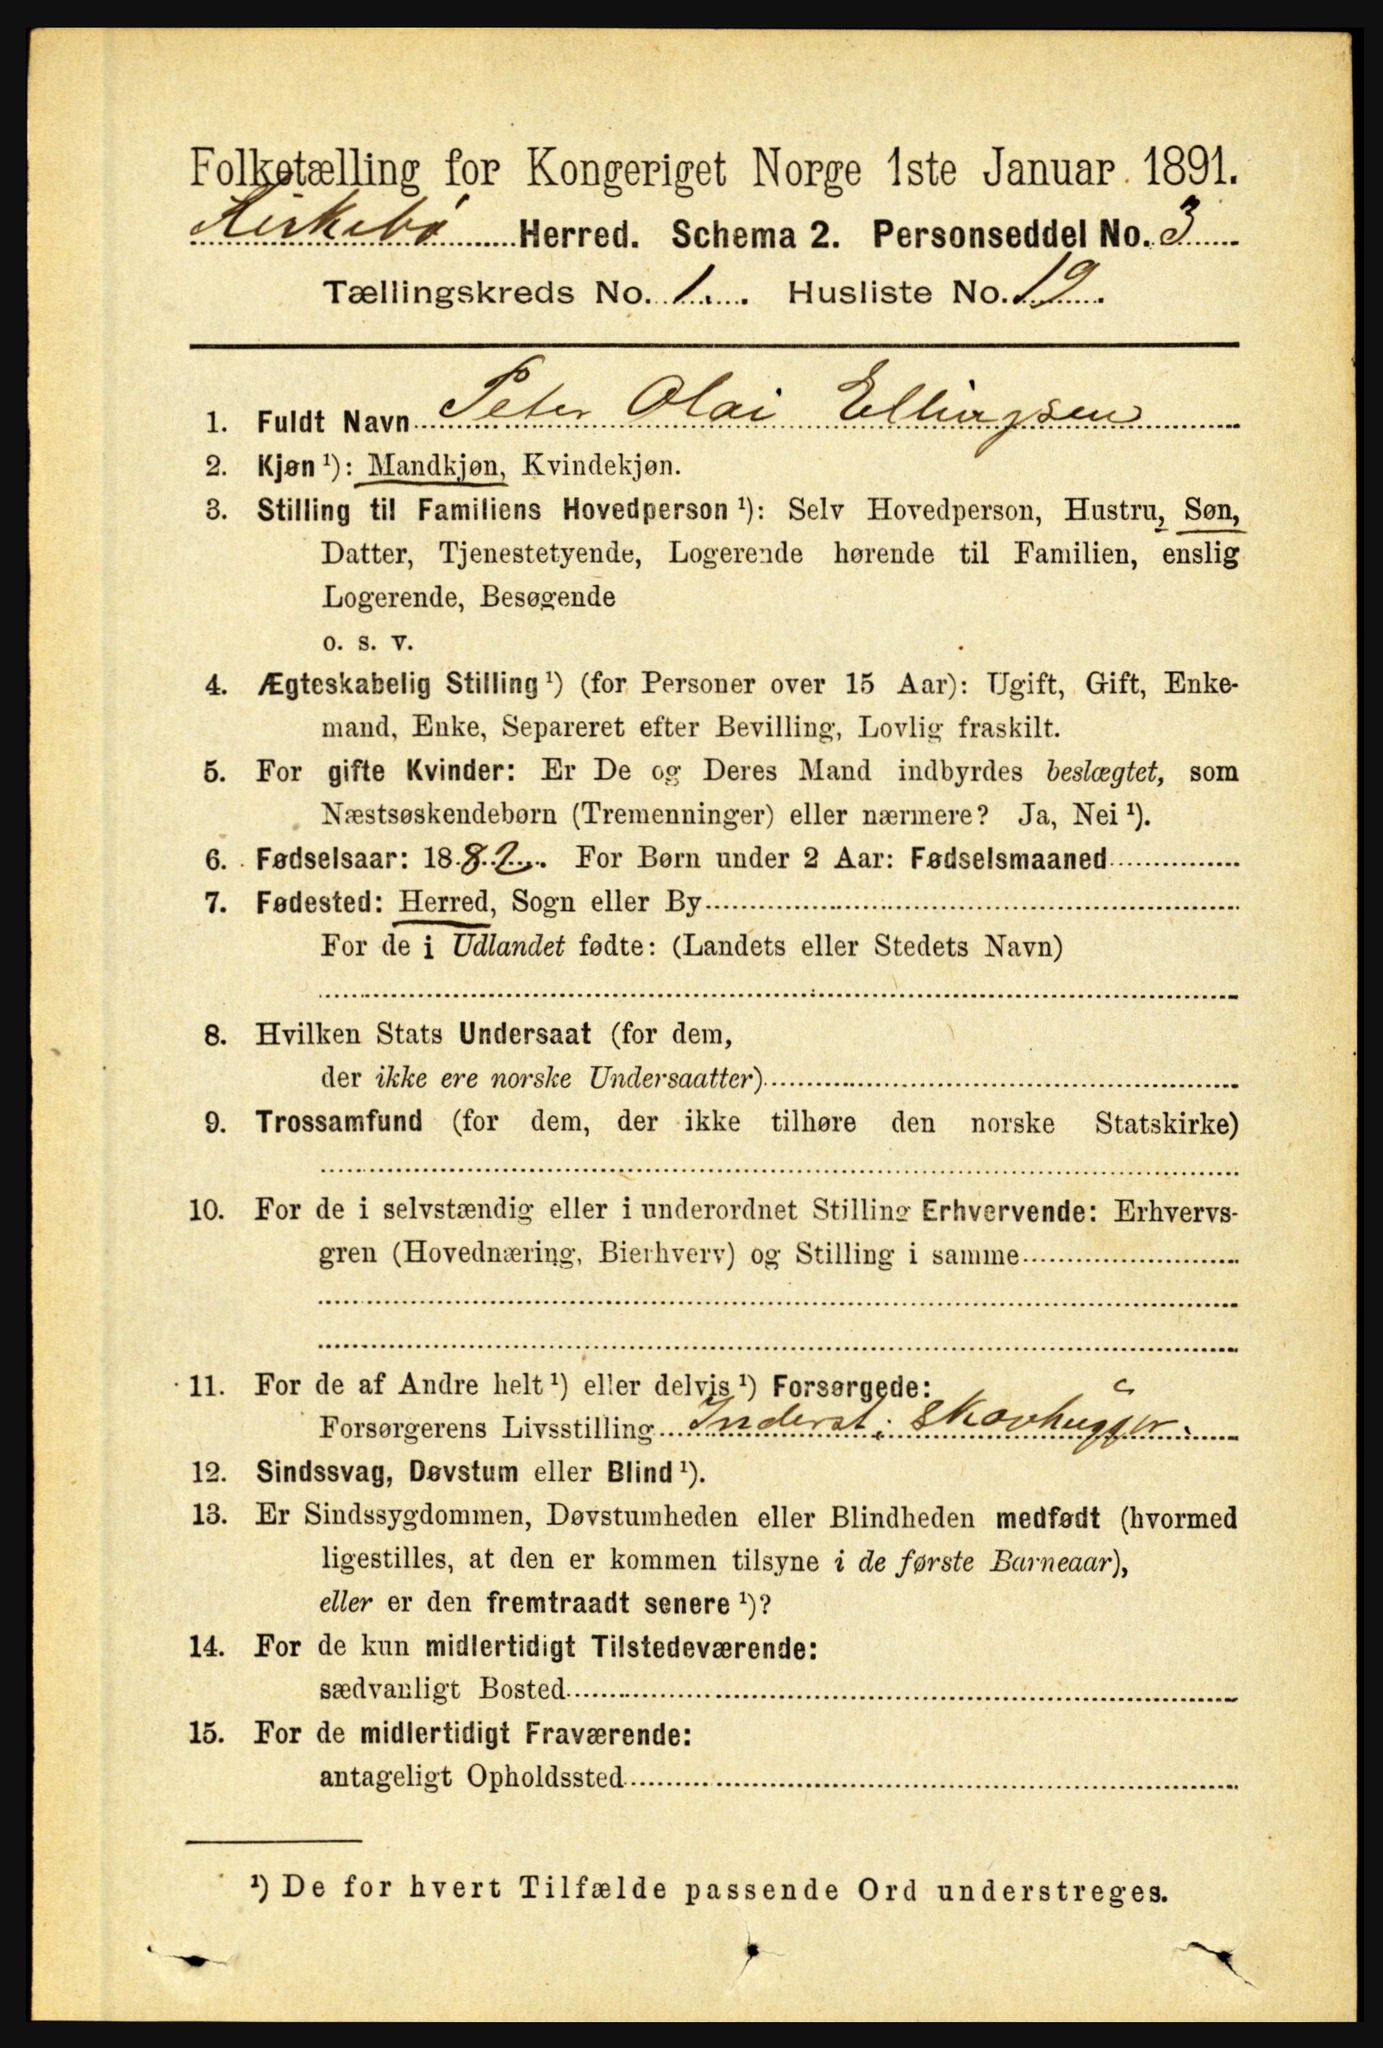 Folketælling for Kongeriget Norge 1ste Januar 1891.
Kirkebø Herred. Schema 2. Personseddel No. 3
Tællingskreds No. 1. Husliste No. 19.
1. Fuldt Navn Peter Olai Ellingsen
2. Kjøn ¹): Mandkjøn, Kvindekjøn.
3. Stilling til Familiens Hovedperson ¹): Selv Hovedperson, Hustru, Søn,
Datter, Tjenestetyende, Logerende hørende til Familien, enslig
Logerende, Besøgende
o. s. v.
4. Ægteskabelig Stilling ¹) (for Personer over 15 Aar): Ugift, Gift, Enke-
mand, Enke, Separeret efter Bevilling, Lovlig fraskilt.
5. For gifte Kvinder: Er De og Deres Mand indbyrdes beslægtet, som
Næstsøskendebørn (Tremenninger) eller nærmere? Ja, Nei ¹).
6. Fødselsaar: 1882. For Børn under 2 Aar: Fødselsmaaned
7. Fødested: Herred, Sogn eller By
For de i Udlandet fødte: (Landets eller Stedets Navn)
8. Hvilken Stats Undersaat (for dem,
der ikke ere norske Undersaatter)
9. Trossamfund (for dem, der ikke tilhøre den norske Statskirke)
10. For de i selvstændig eller i underordnet Stilling Erhvervende: Erhvervs-
gren (Hovednæring, Bierhverv) og Stilling i samme
11. For de af Andre helt ¹) eller delvis ¹) Forsørgede:
Forsørgerens Livsstilling Inderst, Skovhugger.
12. Sindssvag, Døvstum eller Blind ¹).
13. Er Sindssygdommen, Døvstumheden eller Blindheden medfødt (hvormed
ligestilles, at den er kommen tilsyne i de første Barneaar),
eller er den fremtraadt senere ¹)?
14. For de kun midlertidigt Tilstedeværende:
sædvanligt Bosted
15. For de midlertidigt Fraværende:
antageligt Opholdssted
¹) De for hvert Tilfælde passende Ord understreges.